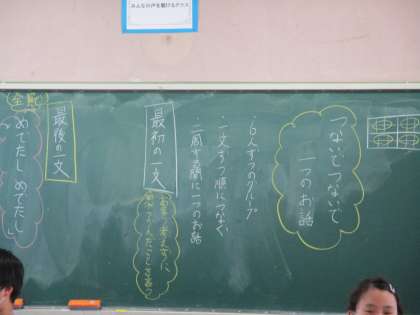 みんなの声を聴けるクラス
つないでつないで
一つのお話
・6人ずつのグループ
・一文ずつ順につなぐ
・二周する間に一つのお話
最初の一文
最後の一文
「めでたし めでたし」